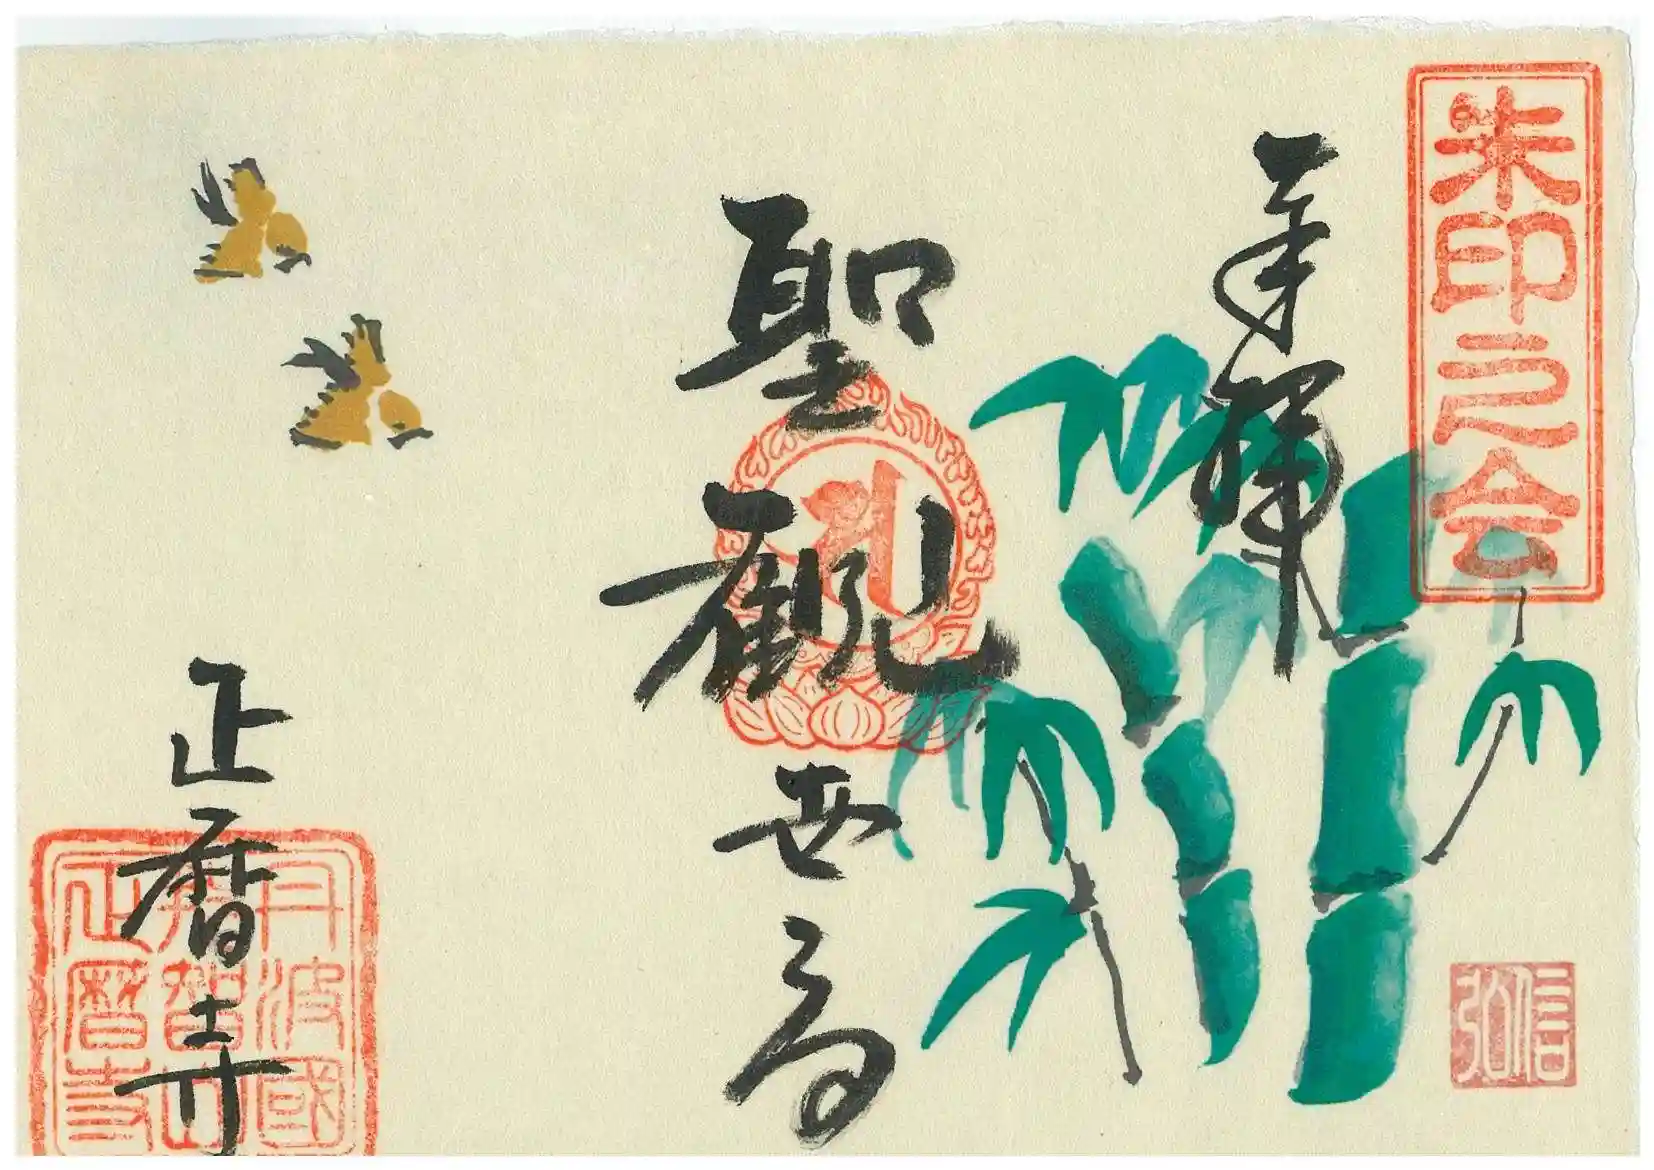 朱印之会
奉拝
信弘
聖観世音
正暦寺
丹波國
智山
正暦寺